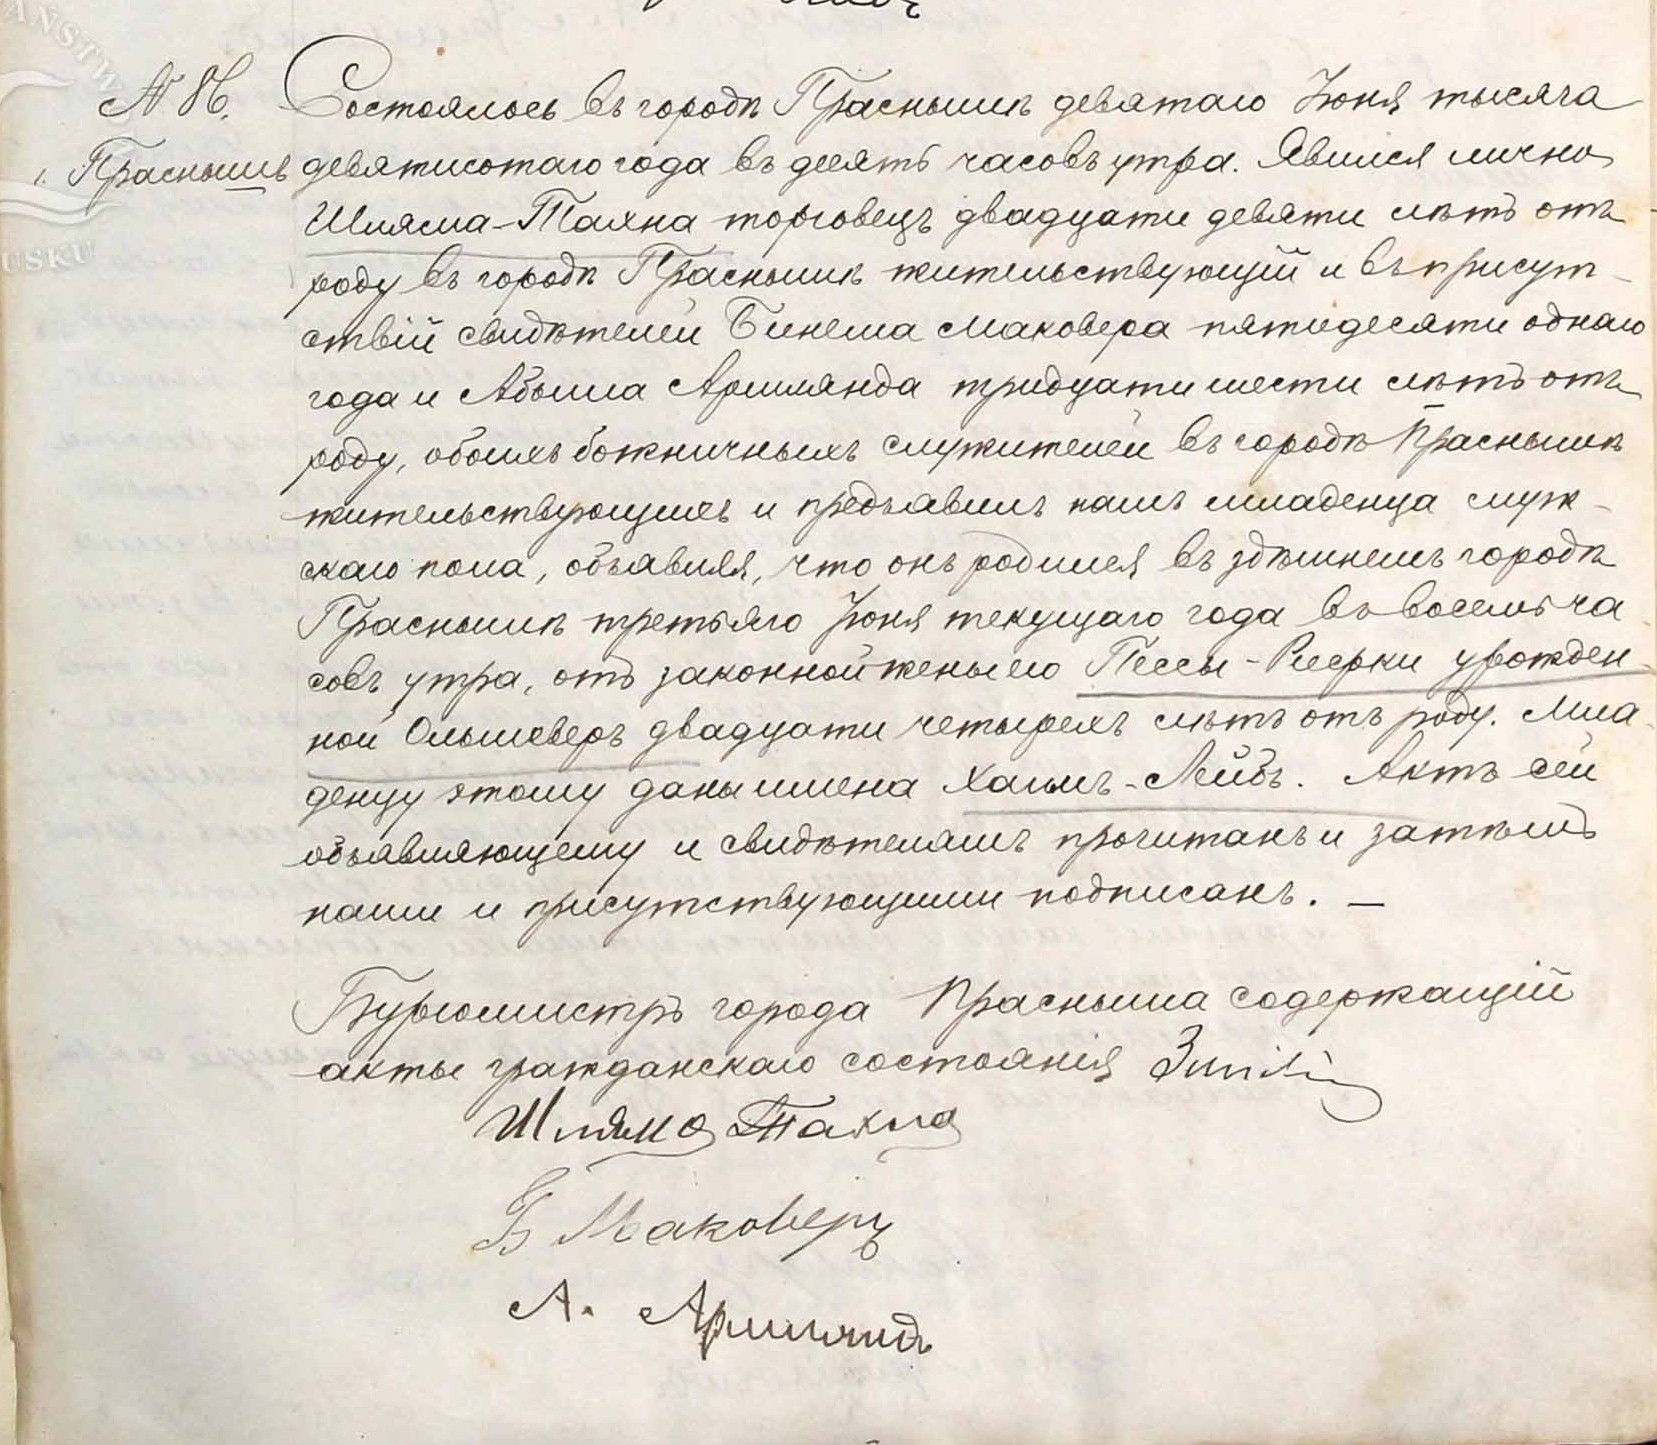 надъ
AŃSTW
USKU
N 86.
Состоялось въ городѣ Праснышѣ девятаго Іюня тысяча
г. Праснышъ девятисотаго года въ десять часовъ утра. Явился лично
Шляма-Тахна торговецъ двадцати девяти лѣтъ отъ
роду въ городѣ Праснышѣ жительствующій и въ присут-
ствій свидѣтелей Бинема Маковера пятидесяти одного
года и Абрама Аришлянда тридцати шести лѣтъ отъ
роду, обоихъ божничныхъ служителей въ городѣ Праснышѣ
жительствующихъ и предъявилъ намъ младенца муж-
скаго пола, объявляя, что онъ родился въ здѣшнемъ городѣ
Праснышѣ третьяго Іюня текущаго года въ восемь ча
совъ утра, отъ законной жены его Пессы-Ривки урожден-
ной Ольшеверъ двадцати четырехъ лѣтъ отъ роду. Мла-
денцу этому даны имена Хаимъ-Лейбъ. Актъ сей
объявляющему и свидѣтелямъ прочитанъ и затѣмъ
нами и присутствующими подписанъ. —
Бургомистръ города Прасныша содержащій
акты гражданскаго состоянія
Шляма Тахна
Б Маковеръ
А.